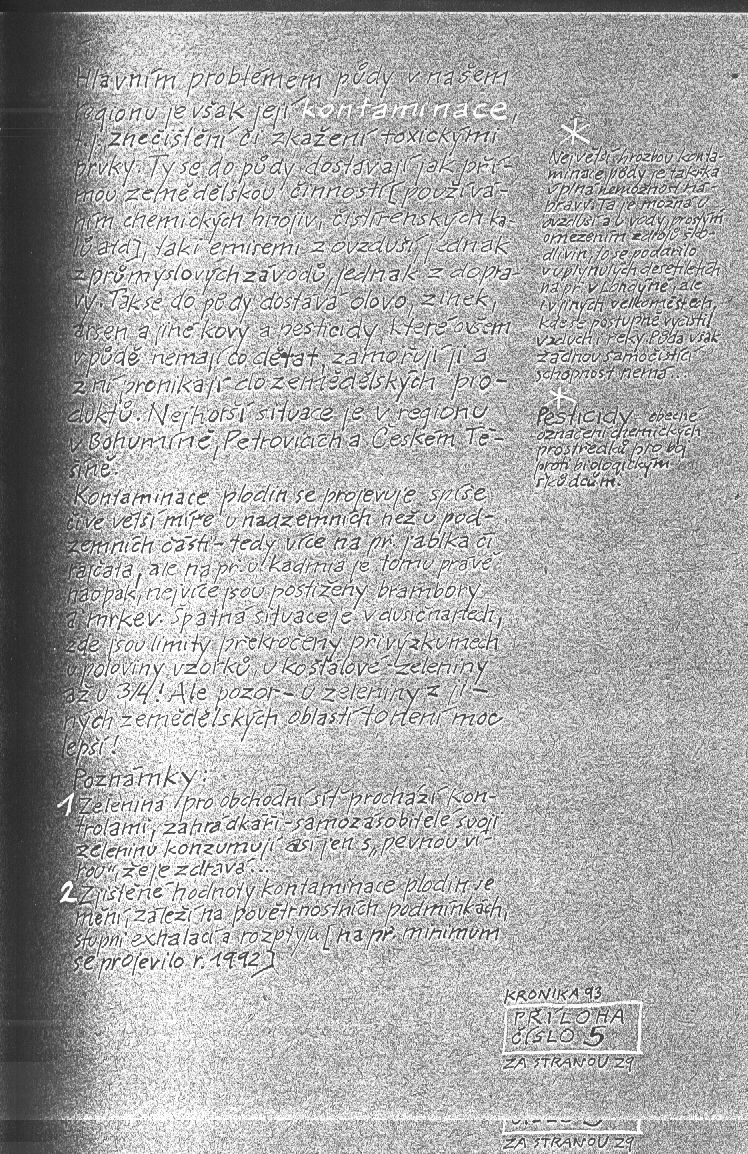 Hlavním problémem půdy v našem
regionu je však její kontaminace,
tj. znečištění či zkažení toxickými
prvky. Ty se do půdy dostávají jak pří-
mou zemědělskou činností [používá-
ním chemických hnojiv, čistírenských ka-
lů atd], tak i emisemi z ovzduší, jednak
z průmyslových závodů, jednak z dopra-
vy. Tak se do půdy dostává olovo, zinek,
arsen a jiné kovy a pesticidy, které ovšem
v půdě nemají co dělat, zamořují ji a
z ní pronikají do zemědělských pro-
duktů. Nejhorší situace je v regionu
v Bohumíně, Petrovicích a Českém Tě-
šíně.
Kontaminace plodin se projevuje spíše
či ve větší míře u nadzemních než u pod-
zemních částí - tedy více na př. jablka či
rajčata, ale na př. u kadmia je tomu právě
naopak, nejvíce jsou postiženy brambory
a mrkev. Špatná situace je v dusičnanech,
kde jsou limity překročeny při výzkumech
u poloviny vzorků, u košťálové zeleniny
až u 3/4! Ale pozor - u zeleniny z ji-
ných zemědělských oblastí to není moc
lepší!
Poznámky:
1 Zelenina pro obchodní síť prochází kon-
trolami, zahrádkáři-samozásobitelé svoji
zeleninu konzumují asi jen s „pevnou ví-
rou“, že je zdravá...
2 Zjištěné hodnoty kontaminace plodin se
mění, záleží na povětrnostních podmínkách,
stupni exhalací a rozptylu [na př. minimum
se projevilo r. 1992]
*
Největší hrozbou konta-
minace půdy je takřka
úplná nemožnost ná-
pravy. Ta je možná u
ovzduší a u vody prostým
omezením zdrojů ško-
dlivin. To se podařilo
v uplynulých desetiletích
na př. v Londýně, ale
i v jiných velkoměstech,
kde se postupně vyčistil
vzduch i řeky. Půda však
žádnou samočistící
schopnost nemá...
*
Pesticidy - obecné
označení chemických
prostředků pro boj
proti biologickým
škůdcům.
KRONIKA 93
PŘÍLOHA
ČÍSLO 5
ZA STRANOU 29
ZA STRANOU 29